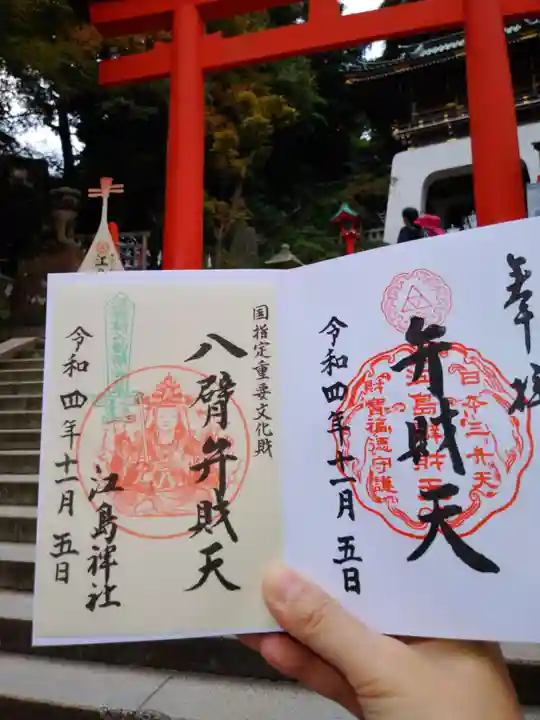 奉拝
弁財天
日本三弁天
江島弁財天
財寶福徳守護
令和四年十一月五日
国指定重要文化財
八臂弁財天
江島神社
令和四年十一月五日
江